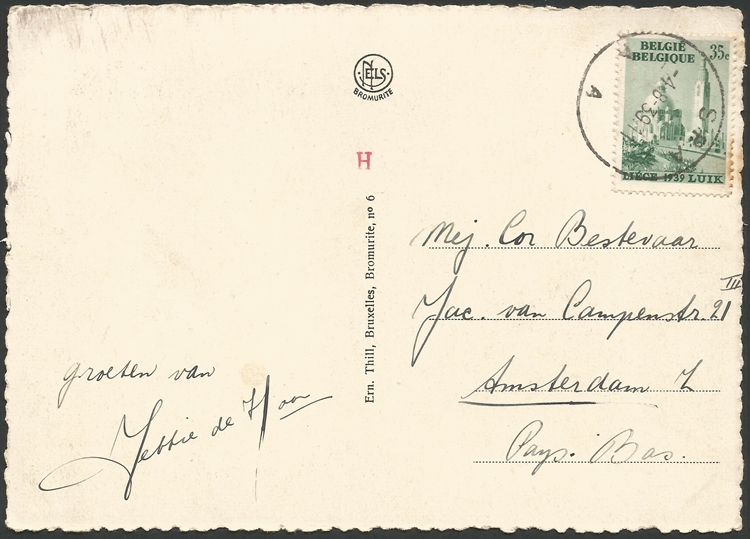 NELS
BROMURITE
H
Ern. Thill, Bruxelles, Bromurite, nº 6
groeten van
Jettie de Haan
BELGIË 35c
BELGIQUE
LIÈGE 1939 LUIK
-4-8-39
A
Mej. Cor Bestevaar
Jac. van Campenstr. 21 III
Amsterdam Z
Pays-Bas.